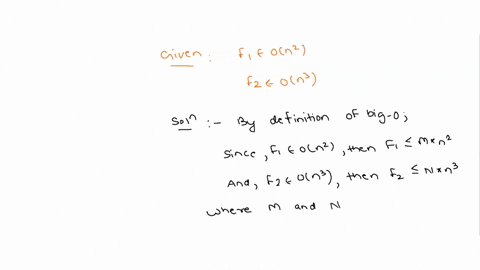 Given : f₁ ∈ O(n²)
f₂ ∈ O(n³)
Solⁿ :- By definition of big-O;
Since, f₁ ∈ O(n²), then F₁ ≤ M*n²
And, f₂ ∈ O(n³), then f₂ ≤ N*n³
where M and N